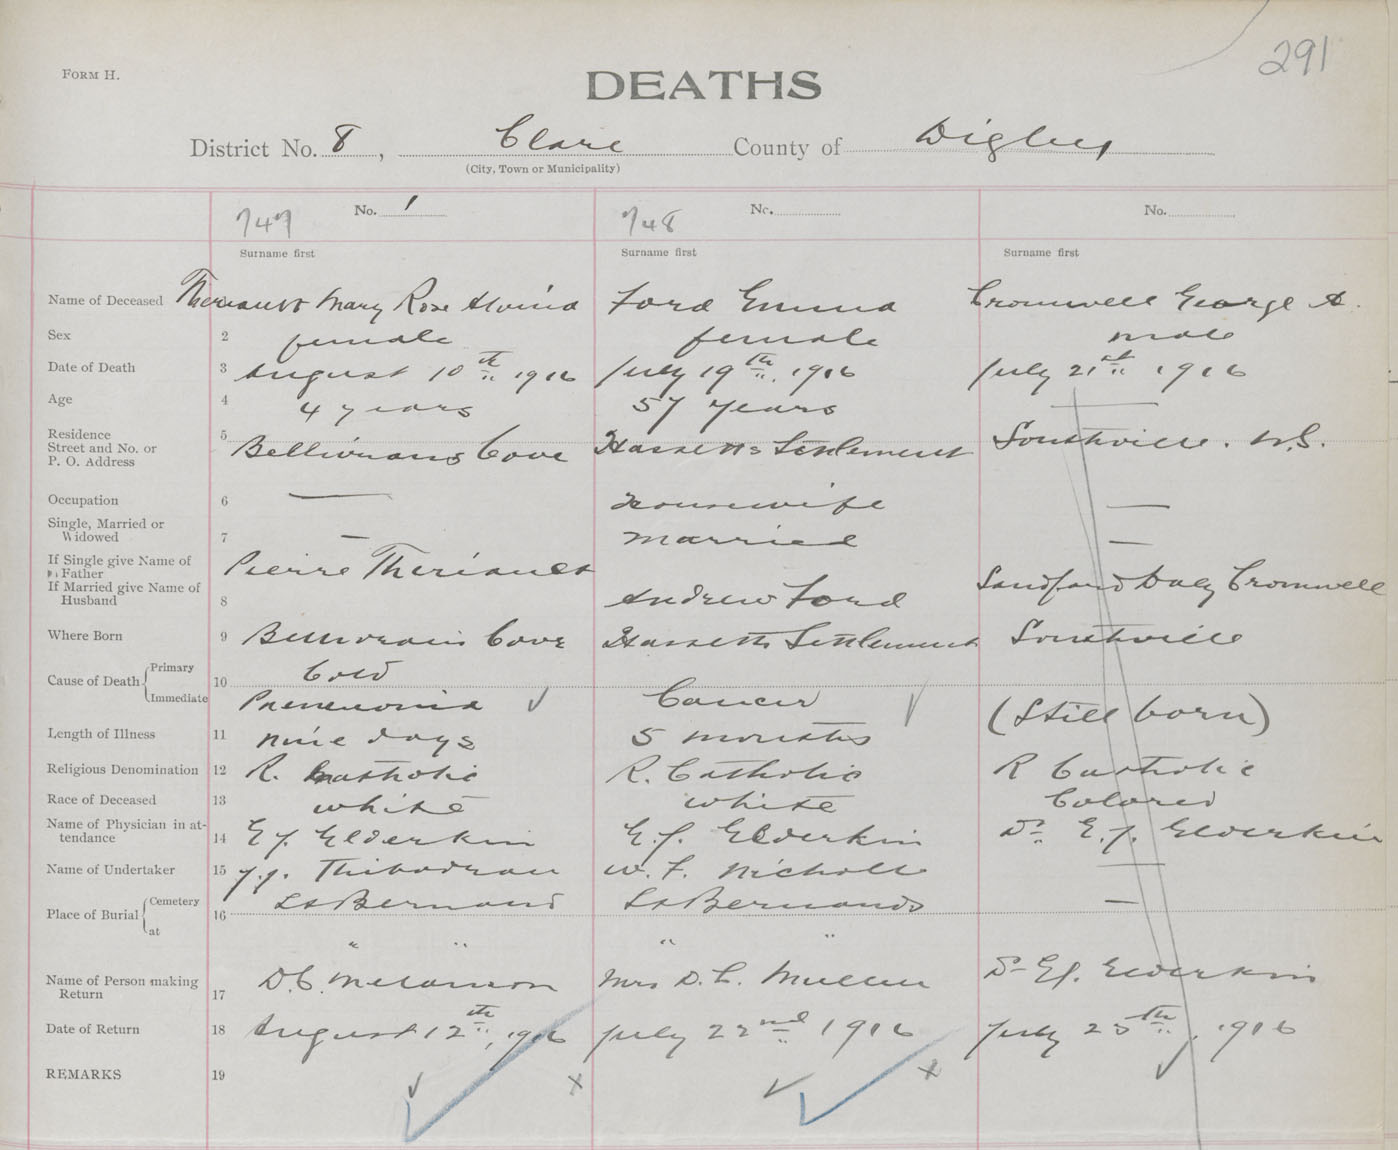 291
FORM H.
DEATHS
District No. 8, Clare County of Digby
(City, Town or Municipality)
747 No. 1 748 No. No.
Surname first Surname first Surname first
Name of Deceased Theriault Mary Rose Alvina Ford Emma Cromwell George A.
Sex 2 female female male
Date of Death 3 August 10th 1916 July 19th, 1916 July 21st 1916
Age 4 4 years 57 years —
Residence
Street and No. or
P. O. Address 5 Belliveaus Cove Hassetts Settlement Southville. N.S.
Occupation 6 — Housewife —
Single, Married or
Widowed 7 — Married —
If Single give Name of
Father Pierre Theriault Sandford Cromwell
If Married give Name of
Husband 8 Andrew Ford
Where Born 9 Belliveaus Cove Hassetts Settlement Southville
Cause of Death Primary 10 Cold
Immediate Pneumonia ✓ Cancer ✓ (Still born)
Length of Illness 11 nine days 5 months
Religious Denomination 12 R. Catholic R. Catholic R Catholic
Race of Deceased 13 white white Colored
Name of Physician in at-
tendance 14 E J. Elderkin E. J. Elderkin Dr. E. J. Elderkin
Name of Undertaker 15 J. J. Thibodeau W. F. Nicholl —
Place of Burial Cemetery 16 St Bernard St Bernards —
at " " " "
Name of Person making
Return 17 D. C. Melanson Mrs D. L. Mullen Dr EJ. Elderkin
Date of Return 18 August 12th, 1916 July 22nd 1916 July 25th, 1916
REMARKS 19 ✓ x ✓ x ✓